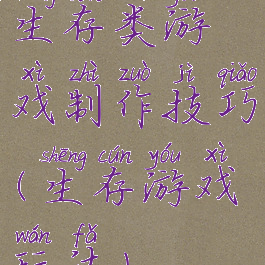 生存类游
xì zhì zuò jì qiǎo
戏制作技巧
shēng cún yóu xì
（生存游戏
wán fǎ
玩法）